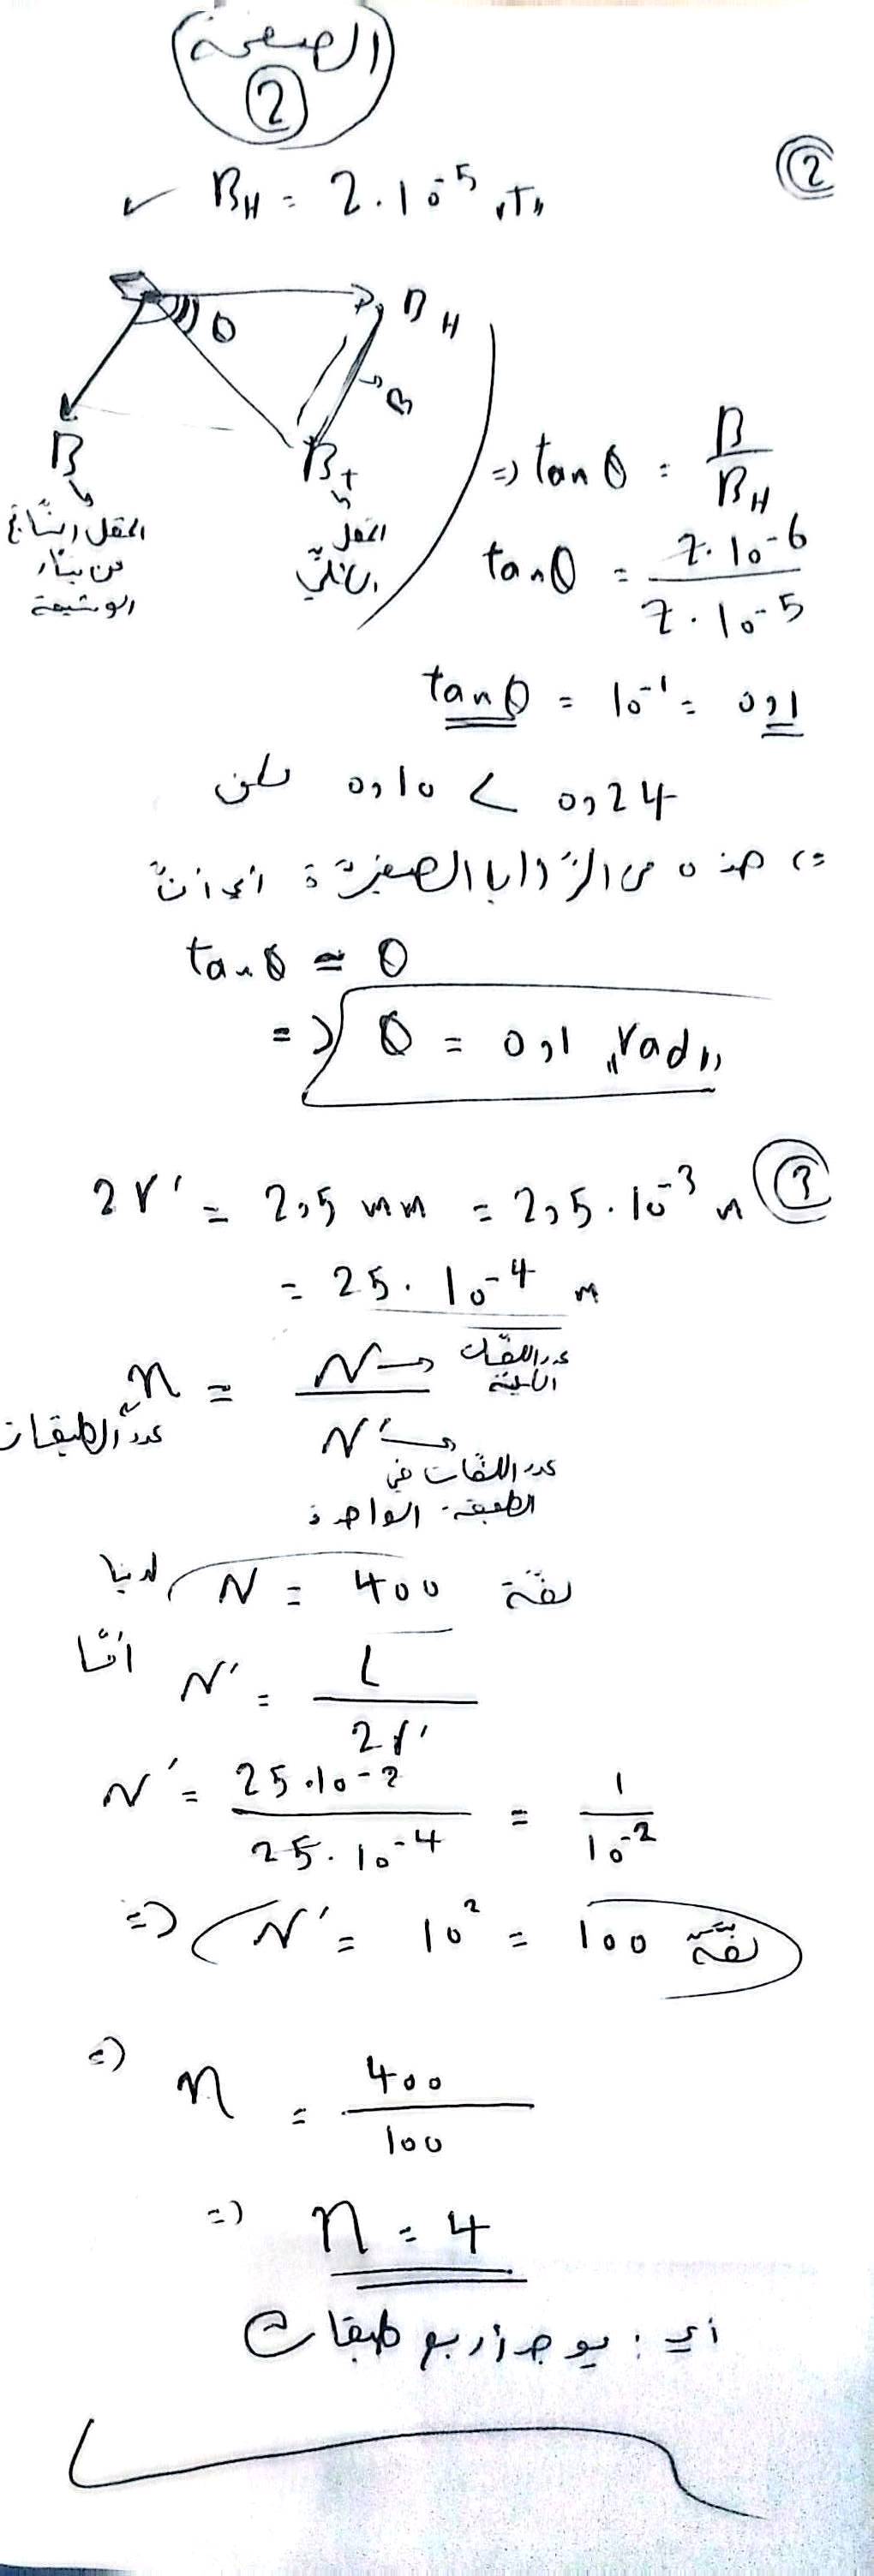 الصفحة
2
2
B_H = 2.10^-5 "T"
θ
B_H
B
B
B_T
الحقل الناتج
عن تيار
الوشيعة
الحقل
الكلّيّ
=> tan θ = B / B_H
tan θ = 2.10^-6 / 2.10^-5
tan θ = 10^-1 = 0,1
لكن 0,10 < 0,24
=> هذه من الزّوايا الصغيرة أي أنّ
tan θ ≃ θ
=> θ = 0,1 "rad"
3
2r' = 2,5 mm = 2,5.10^-3 m
= 25.10^-4 m
n = N / N'
عدد الطبقات
عدد اللفّات
الكلية
عدد اللفّات في
الطبقة الواحدة
لدينا N = 400 لفّة
أمّا N' = L / 2r'
N' = 25.10^-2 / 25.10^-4 = 1 / 10^-2
=> N' = 10^2 = 100 لفّة
=> n = 400 / 100
=> n = 4
أي : يوجد أربع طبقات